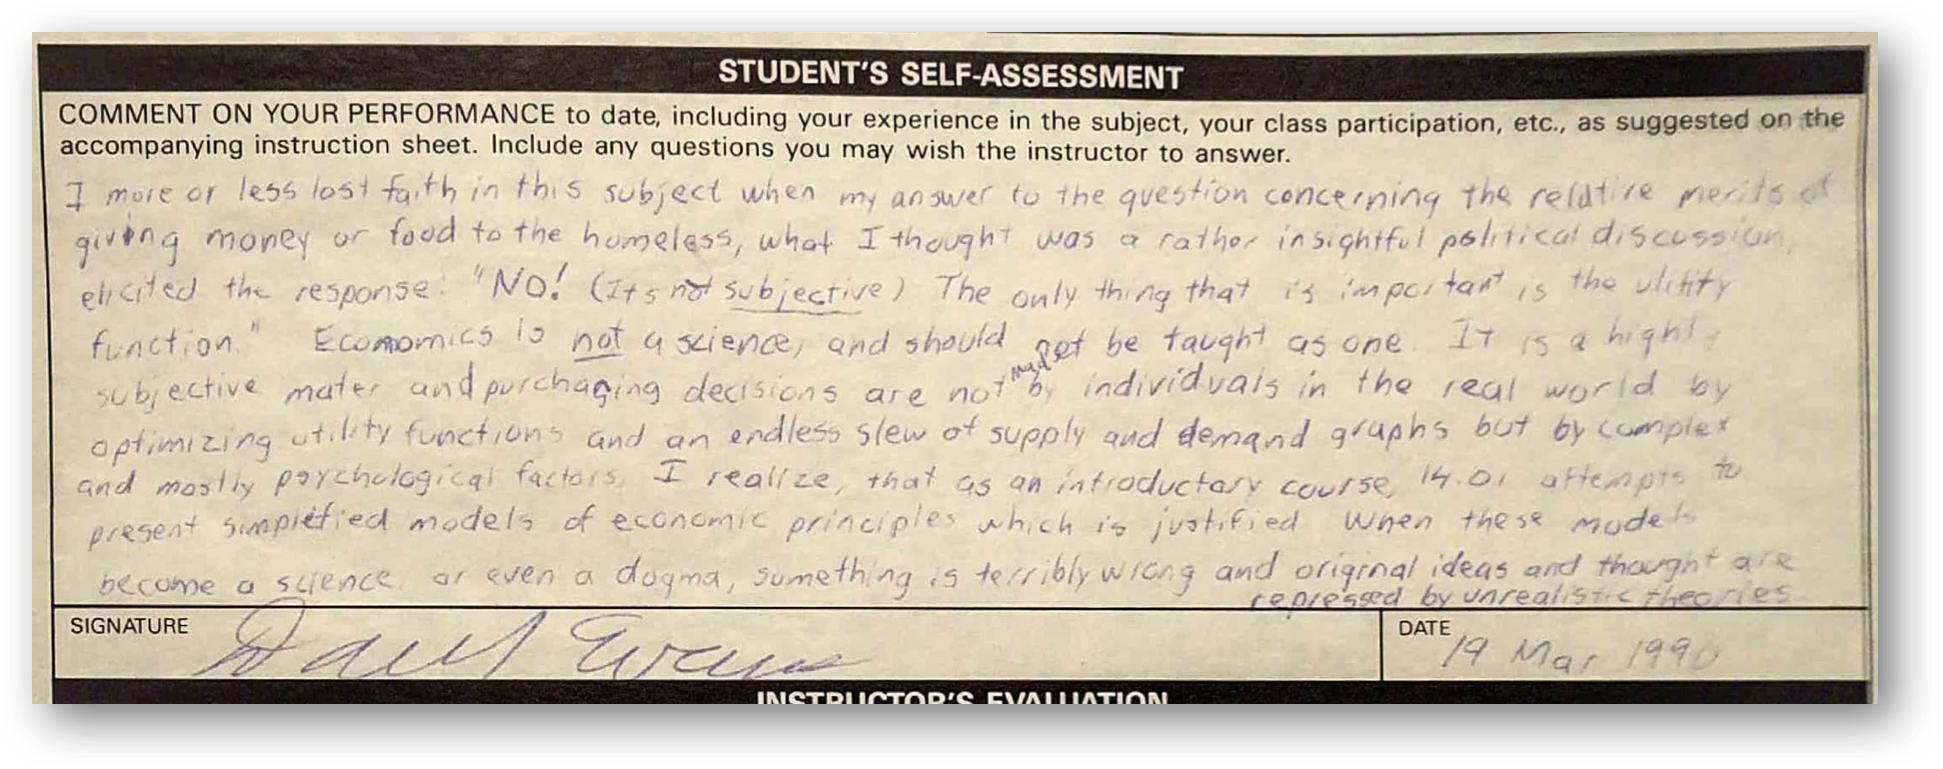 STUDENT'S SELF-ASSESSMENT
COMMENT ON YOUR PERFORMANCE to date, including your experience in the subject, your class participation, etc., as suggested on the
accompanying instruction sheet. Include any questions you may wish the instructor to answer.
I more or less lost faith in this subject when my answer to the question concerning the relative merits of
giving money or food to the homeless, what I thought was a rather insightful political discussion,
elicited the response: "No! (Its not subjective) The only thing that is important is the utility
function." Economics is not a science, and should not be taught as one. It is a highly
subjective mater and purchasing decisions are not made by individuals in the real world by
optimizing utility functions and an endless slew of supply and demand graphs but by complex
and mostly psychological factors. I realize, that as an introductory course, 14.01 attempts to
present simplified models of economic principles which is justified. When these models
become a science, or even a dogma, something is terribly wrong and original ideas and thought are
repressed by unrealistic theories
SIGNATURE
Evans
DATE 19 Mar 1990
INSTRUCTOR'S EVALUATION